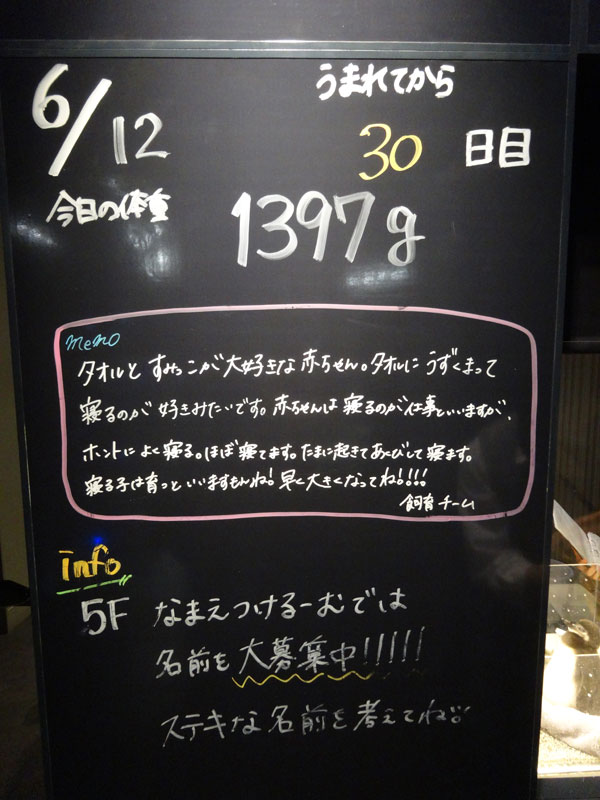 6/12
うまれてから
30 日目
今日の体重
1397g
memo
タオルと すみっこが大好きな赤ちゃん。タオルに うずくまって
寝るのが 好きみたいです。赤ちゃんは 寝るのが仕事といいますが、
ホントに よく寝る。ほぼ寝てます。たまに起きてあくびして寝ます。
寝る子は育つと いいますもんね! 早く大きくなってね!!!!
飼育チーム
info
5F なまえつけるーむでは
名前を 大募集中!!!!!
ステキな名前を考えてね!!